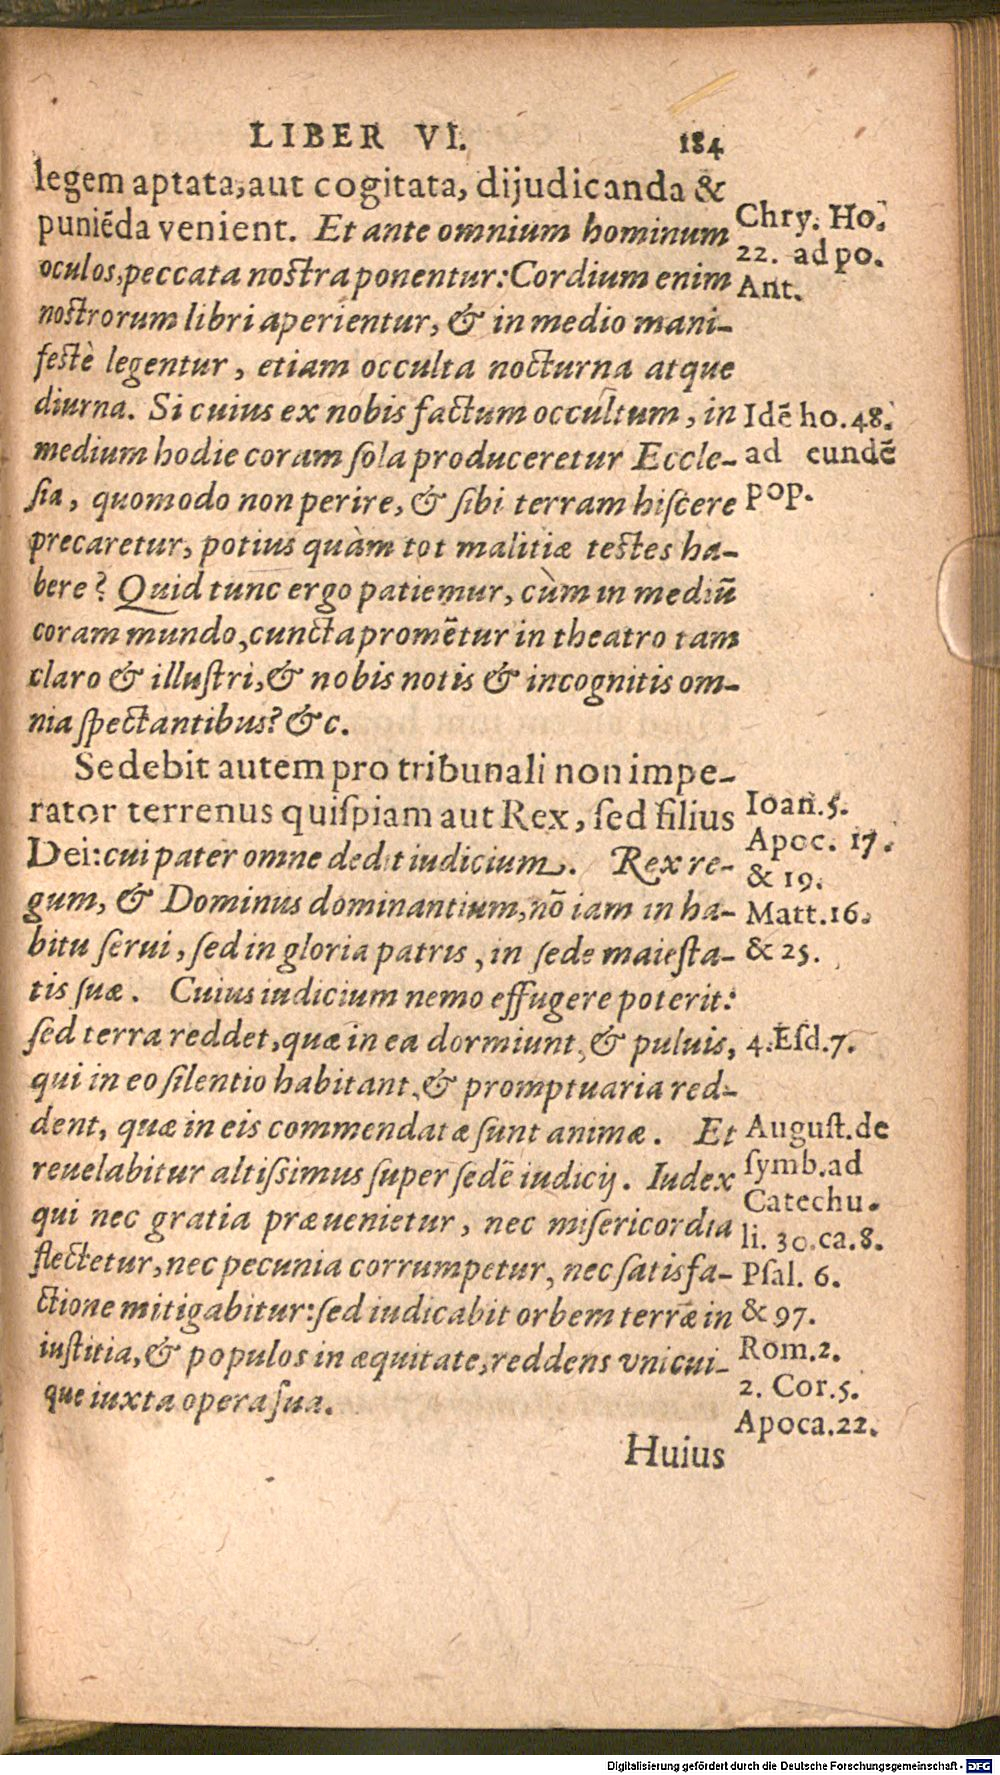 LIBER VI. 184
legem aptata, aut cogitata, dijudicanda &
puniēda venient. Et ante omnium hominum
oculos, peccata nostra ponentur: Cordium enim
nostrorum libri aperientur, & in medio mani-
festè legentur, etiam occulta nocturna atque
diurna. Si cuius ex nobis factum occultum, in
medium hodie coram sola produceretur Eccle-
sia, quomodo non perire, & sibi terram hiscere
precaretur, potius quàm tot malitiæ testes ha-
bere? Quid tunc ergo patiemur, cùm in mediū
coram mundo, cuncta promētur in theatro tam
claro & illustri, & nobis notis & incognitis om-
nia spectantibus? &c.
Sedebit autem pro tribunali non impe-
rator terrenus quispiam aut Rex, sed filius
Dei: cui pater omne dedit iudicium. Rex re-
gum, & Dominus dominantium, nō iam in ha-
bitu serui, sed in gloria patris, in sede maiesta-
tis suæ. Cuius iudicium nemo effugere poterit:
sed terra reddet, quæ in ea dormiunt, & puluis,
qui in eo silentio habitant, & promptuaria red-
dent, quæ in eis commendatæ sunt animæ. Et
reuelabitur altissimus super sedē iudicij. Iudex
qui nec gratia præuenietur, nec misericordia
flectetur, nec pecunia corrumpetur, nec satisfa-
ctione mitigabitur: sed iudicabit orbem terræ in
iustitia, & populos in æquitate, reddens vnicui-
que iuxta opera sua.
Huius
Chry. Ho.
22. ad po.
Ant.
Idē ho. 48.
ad eundē
pop.
Ioan. 5.
Apoc. 17.
& 19.
Matt. 16.
& 25.
4. Esd. 7.
August. de
symb. ad
Catechu.
li. 30. ca. 8.
Psal. 6.
& 97.
Rom. 2.
2. Cor. 5.
Apoca. 22.
Digitalisierung gefördert durch die Deutsche Forschungsgemeinschaft - DFG